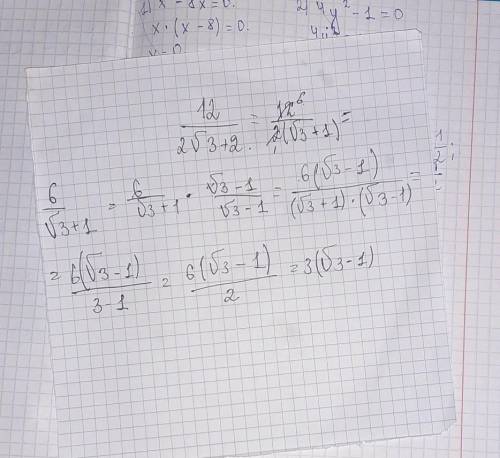 x - 8x = 0.
x · (x - 8) = 0.
2) 4y² - 1 = 0
12 / (2√3 + 2) = 12⁶ / (2(√3 + 1)) =
6 / (√3 + 1) = 6 / (√3 + 1) · (√3 - 1) / (√3 - 1) = 6(√3 - 1) / ((√3 + 1) · (√3 - 1)) =
= 6(√3 - 1) / (3 - 1) = 6(√3 - 1) / 2 = 3(√3 - 1)
1/2;